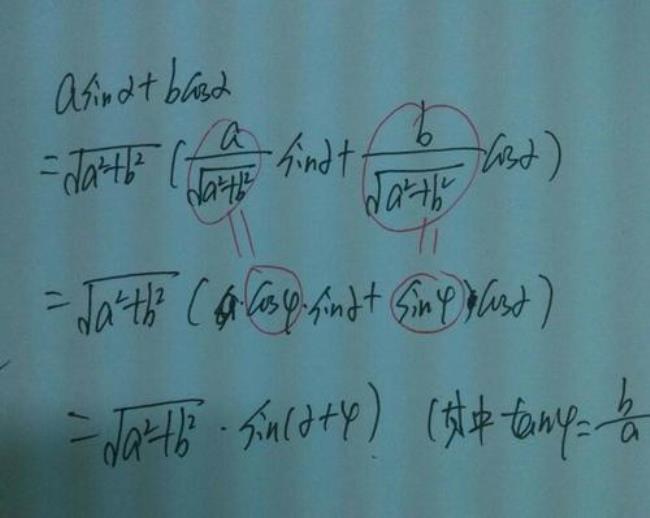 asinα+bcosα
=√(a²+b²) (a/√(a²+b²) sinα+b/√(a²+b²) cosα)
=√(a²+b²) (cosφ·sinα+sinφ cosα)
=√(a²+b²)·sin(α+φ) (其中tanφ=b/a